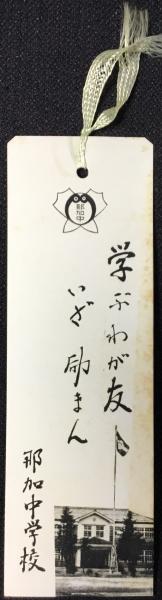 那加中
学ぶわが友
いざ励まん
那加中学校